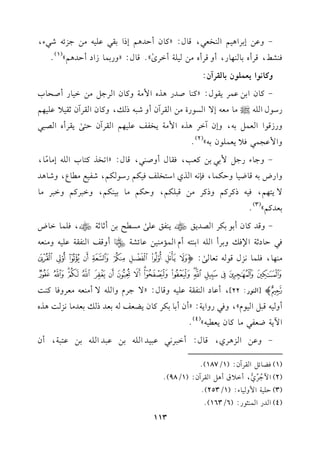 - وعن إبراهيم النخعي، قال: «كان أحدهم إذا بقي عليه من جزئه شيء،
فنشط، قرأه بالنهار، أو قرأه من ليلة أخرى». قال: «وربما زاد أحدهم»(١).
وكانوا يعملون بالقرآن:
- كان ابن عمر يقول: «كنا صدر هذه الأمة وكان الرجل من خيار أصحاب
رسول الله ﷺ ما معه إلا السورة من القرآن أو شبه ذلك، وكان القرآن ثقيلا عليهم
ورزقوا العمل به، وإن آخر هذه الأمة يخفف عليهم القرآن حتى يقرأه الصبي
والأعجمي فلا يعملون به»(٢).
- وجاء رجل لأبي بن كعب، فقال أوصني، قال: «اتخذ كتاب الله إمامًا،
وارض به قاضيا وحكما، فإنه الذي استخلف فيكم رسولكم، شفيع مطاع، وشاهد
لا يتهم، فيه ذكركم وذكر من قبلكم، وحكم ما بينكم، وخبركم وخبر ما
بعدكم»(٣).
- وقد كان أبو بكر الصديق ﷺ ينفق على مسطح بن أثاثة ﷺ، فلما خاض
في حادثة الإفك وبرأ الله ابنته أم المؤمنين عائشة أوقف النفقة عليه ومنعه
منها، فلما نزل قوله تعالى: ﴿وَلَا يَأْتَلِ أُوْلُوا۟ ٱلْفَضْلِ مِنكُمْ وَٱلسَّعَةِ أَن يُؤْتُوٓا۟ أُو۟لِى ٱلْقُرْبَىٰ
وَٱلْمَسَـٰكِينَ وَٱلْمُهَـٰجِرِينَ فِى سَبِيلِ ٱللَّهِ وَلْيَعْفُوا۟ وَلْيَصْفَحُوٓا۟ أَلَا تُحِبُّونَ أَن يَغْفِرَ ٱللَّهُ لَكُمْ وَٱللَّهُ غَفُورٌ
رَّحِيمٌ﴾ [النور: ٢٢]، أعاد النفقة عليه وقال: «لا جرم والله لا أمنعه معروفا كنت
أوليه قبل اليوم»، وفي رواية: «أن أبا بكر كان يضعف له بعد ذلك بعدما نزلت هذه
الآية ضعفي ما كان يعطيه»(٤).
- وعن الزهري، قال: أخبرني عبيد الله بن عبد الله بن عتبة، أن
(١) فضائل القرآن: (١/ ١٨٧).
(٢) الآجُرِّيُّ، أخلاق أهل القرآن: (١/ ٩٨).
(٣) حلية الأولياء: (١/ ٢٥٣).
(٤) الدر المنثور: (٦/ ١٦٣).
١١٣